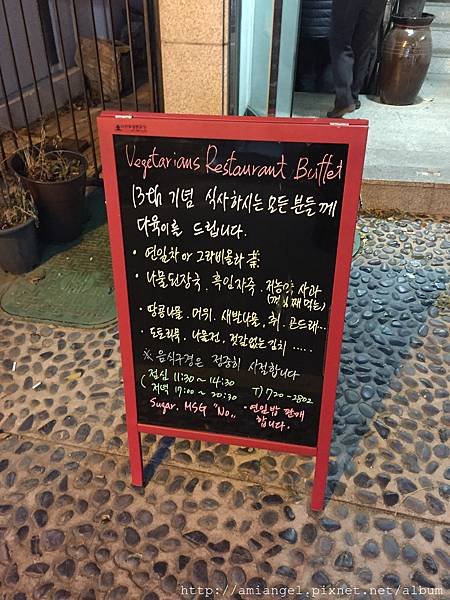 Vegetarians Restaurant Buffet
13th 기념 식사하시는 모든 분들께
다육이를 드립니다.
· 연잎차 or 그라비올라 茶
· 나물된장국. 흑임자죽. 저농약 사과
(껍질째 먹는)
· 땅콩나물. 머위. 새발나물. 취. 곤드레...
· 도토리묵. 나물전. 젓갈없는 김치 .....
※ 음식구경은 정중히 사절합니다
( 점심 11:30 ~ 14:30
저녁 17:00 ~ 20:30 T) 720-2802
Sugar. MSG "No,, · 연잎밥 판매
합니다.
http://amiangel.pixnet.net/album